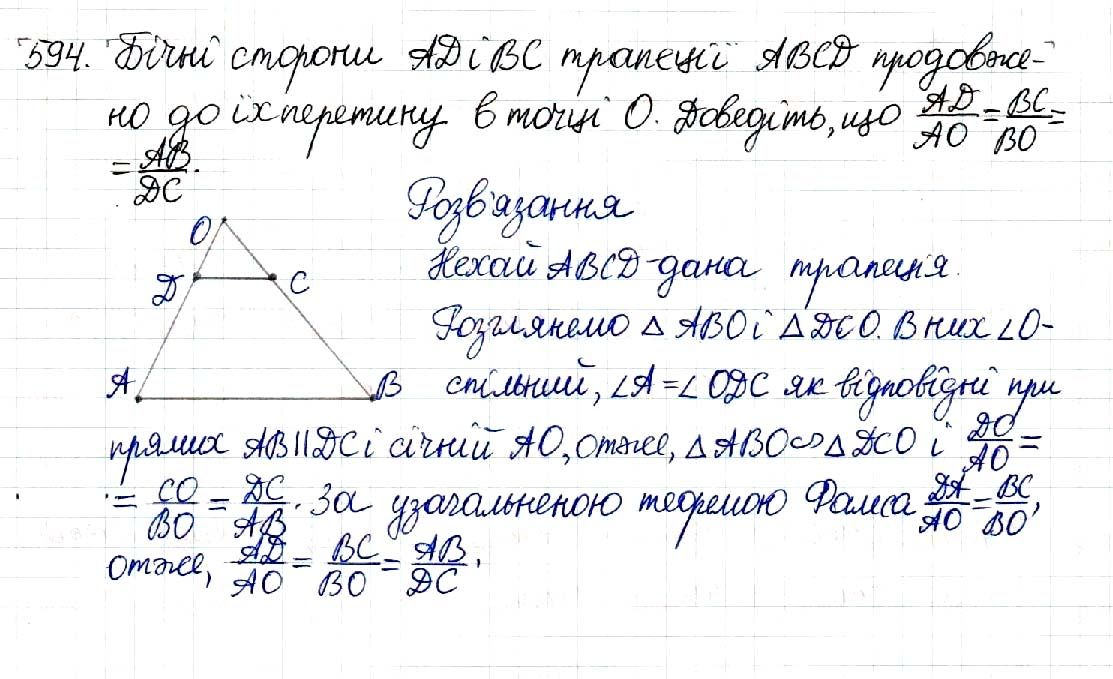 594. Бічні сторони AD і BC трапеції ABCD продовже-
но до їх перетину в точці O. Доведіть, що AD/AO = BC/BO =
= AB/DC.
Розв'язання
O
Нехай ABCD - дана трапеція.
D C
Розглянемо △ ABO і △ DCO. В них ∠O -
A B
спільний, ∠A = ∠ODC як відповідні при
прямих AB || DC і січній AO, отже, △ABO ∽ △DCO і DO/AO =
= CO/BO = DC/AB. За узагальненою теоремою Фалеса DA/AO = BC/BO,
отже, AD/AO = BC/BO = AB/DC.